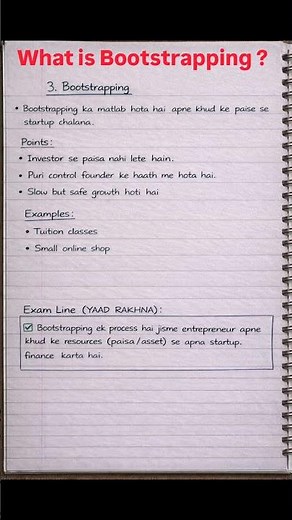 What is Bootstrapping ?
3. Bootstrapping
• Bootstrapping ka matlab hota hai apne khud ke paise se
startup chalana.
Points:
• Investor se paisa nahi lete hain.
• Puri control founder ke haath me hota hai.
• Slow but safe growth hoti hai
Examples:
• Tuition classes
• Small online shop
Exam Line (YAAD RAKHNA):
☑ Bootstrapping ek process hai jisme entrepreneur apne
khud ke resources (paisa/asset) se apna startup.
finance karta hai.